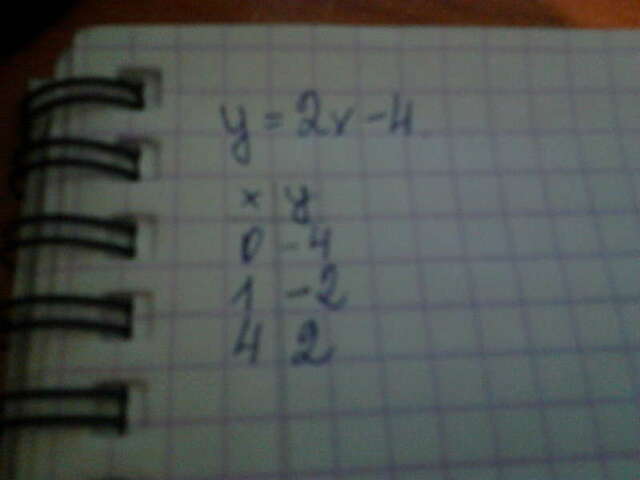 y = 2x - 4
x y
0 -4
1 -2
4 2